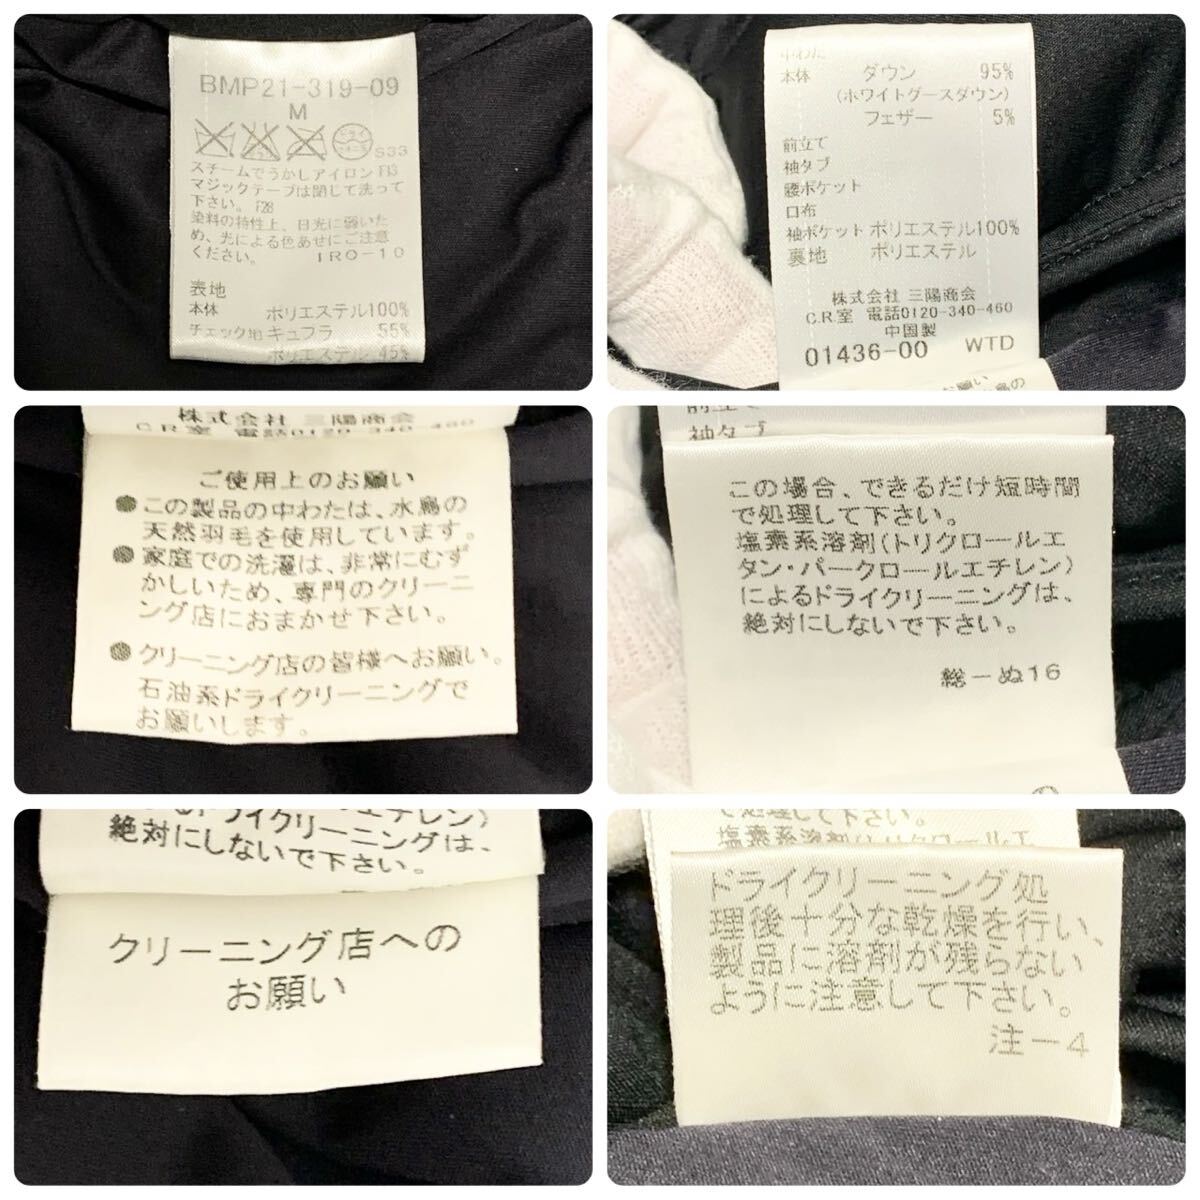 BMP21-319-09
M
ドライ
セキユ系
S33
スチームでうかしアイロン F13
マジックテープは閉じて洗って
下さい。F28
染料の特性上、日光に弱いた
め、光による色あせにご注意
ください。 IRO-10
表地
本体 ポリエステル100%
チェック地 キュプラ 55%
ポリエステル 45%
中わた
本体 ダウン 95%
(ホワイトグースダウン)
フェザー 5%
前立て
袖タブ
腰ポケット
口布
袖ポケット ポリエステル100%
裏地 ポリエステル
株式会社 三陽商会
C.R.室 電話0120-340-460
中国製
01436-00 WTD
お願い
鳥の
株式会社 三陽商会
C.R.室 電話0120-340-460
ご使用上のお願い
●この製品の中わたは、水鳥の
天然羽毛を使用しています。
●家庭での洗濯は、非常にむず
かしいため、専門のクリーニ
ング店におまかせ下さい。
●クリーニング店の皆様へお願い。
石油系ドライクリーニングで
お願いします。
前立て
袖タブ
この場合、できるだけ短時間
で処理して下さい。
塩素系溶剤(トリクロールエ
タン・パークロールエチレン)
によるドライクリーニングは、
絶対にしないで下さい。
総-ぬ16
の
エチレン)
るドライクリーニングは、
絶対にしないで下さい。
クリーニング店への
お願い
で処理して下さい。
塩素系溶剤(トリクロールエ
ドライクリーニング処
理後十分な乾燥を行い、
製品に溶剤が残らない
ように注意して下さい。
注-4